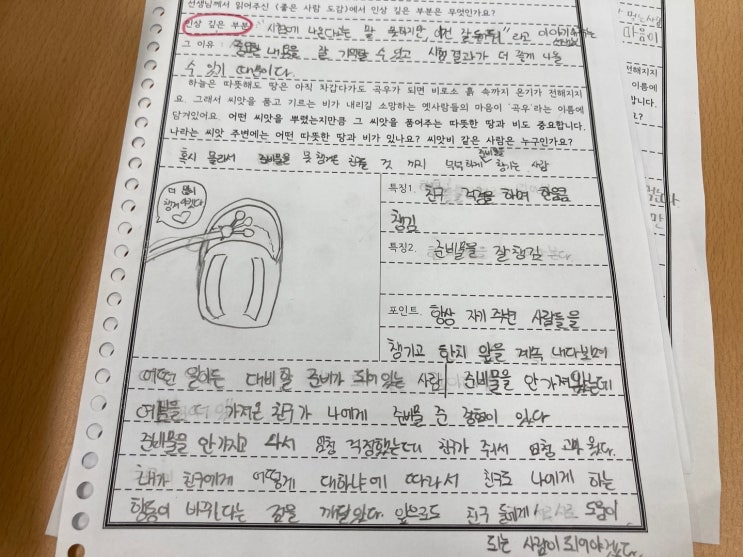 선생님께서 읽어주신 <좋은 사람 도감>에서 인상 깊은 부분은 무엇인가요?
인상 깊은 부분 : "시험에 나온다는 말 못하지만 이건 잘 들어둬" 라고 이야기해주는
선생님
그 이유 : 중요한 내용을 잘 기억할 수 있고 시험 결과가 더 좋게 나올
수 있기 때문이다.
하늘은 따뜻해도 땅은 아직 차갑다가도 곡우가 되면 비로소 흙 속까지 온기가 전해지지
요. 그래서 씨앗을 품고 기르는 비가 내리길 소망하는 옛사람들의 마음이 '곡우'라는 이름에
담겨있어요. 어떤 씨앗을 뿌렸는지만큼 그 씨앗을 품어주는 따뜻한 땅과 비도 중요합니다.
나라는 씨앗 주변에는 어떤 따뜻한 땅과 비가 있나요? 씨앗비 같은 사람은 누구인가요?
준비물을
혹시 몰라서 준비물을 못 챙겨온 친구들 것 까지 넉넉하게 챙기는 사람
더 많이
챙겨 야겠다
특징1. 친구 걱정을 하며 한움큼
챙김
특징2. 준비물을 잘 챙김
포인트. 항상 자기 주변 사람들을
챙기고 한치 앞을 계속 내다보며
어떤 일이든 대비할 준비가 되어 있는 사람 준비물을 안 가져왔는데
가져온 친구가 나에게 준비물 준 경험이 있다
준비물을 안가지고 와서 엄청 걱정했는데 친구가 줘서 엄청 고마웠다.
내가 친구에게 어떻게 대하냐에 따라서 친구도 나에게 하는
행동이 바뀐다는 점을 깨달았다. 앞으로도 친구들에게 서로서로 도움이
되는 사람이 되어야겠다.
마음이
전해지지
이름에